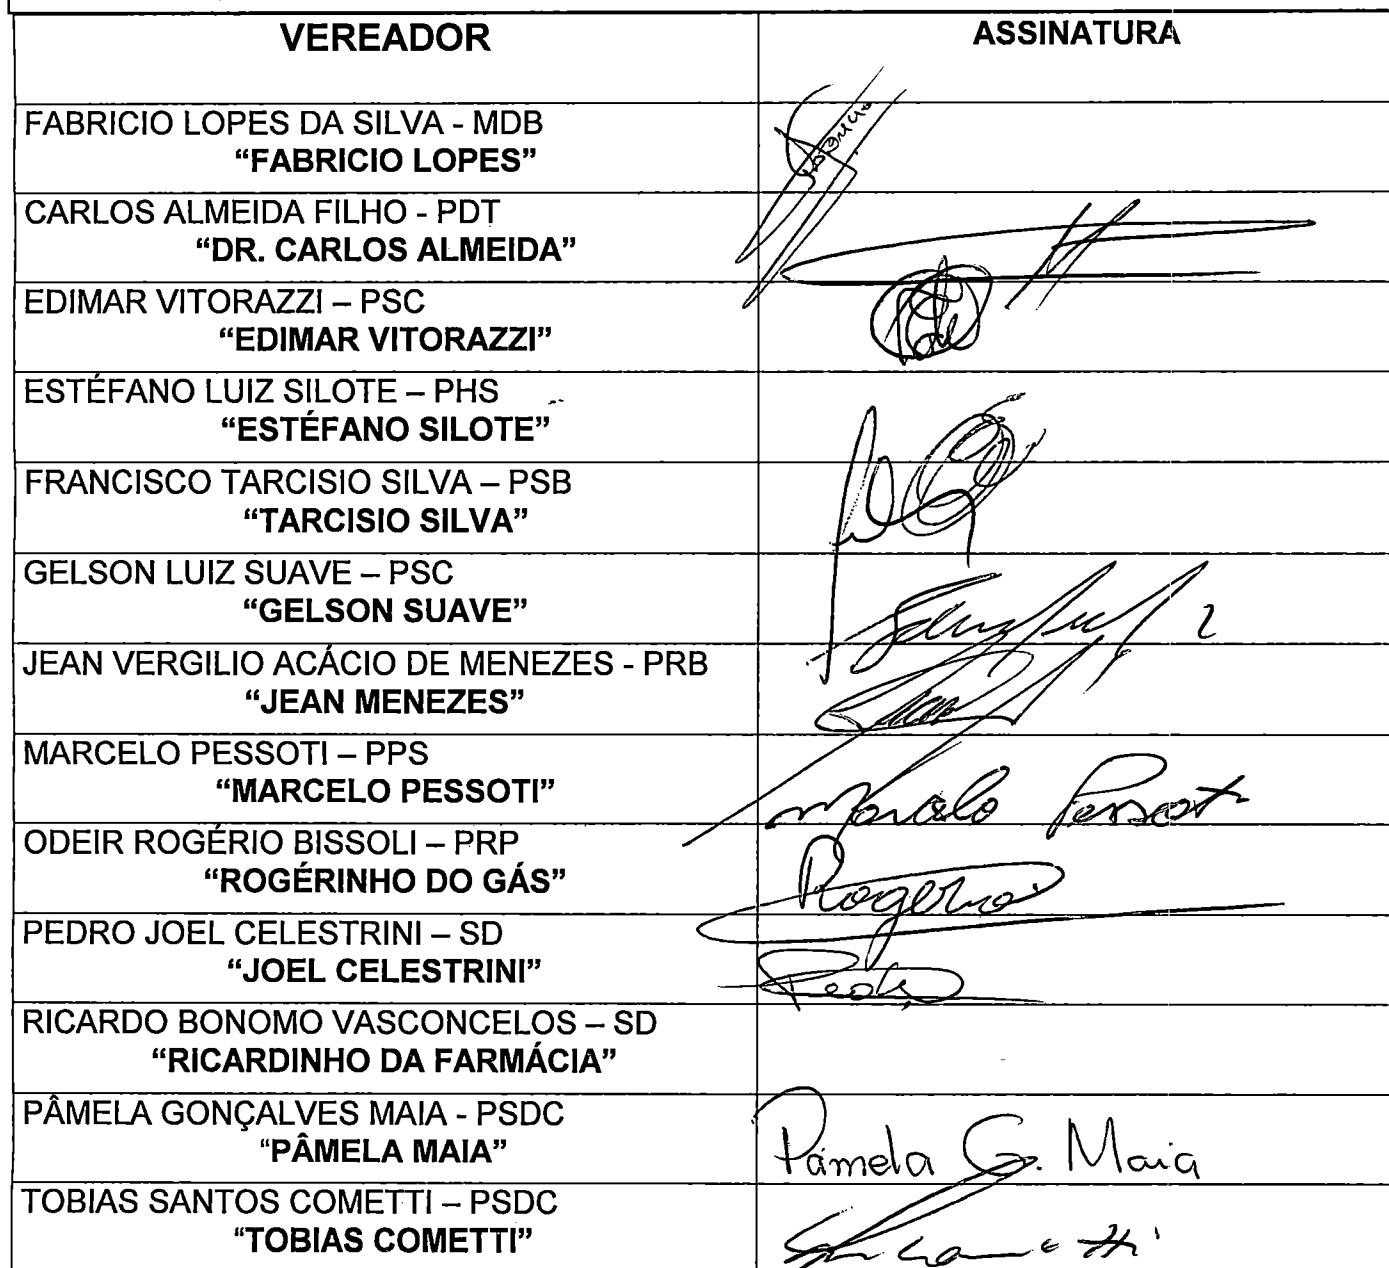 VEREADOR ASSINATURA
FABRICIO LOPES DA SILVA - MDB
“FABRICIO LOPES”
CARLOS ALMEIDA FILHO - PDT
“DR. CARLOS ALMEIDA”
EDIMAR VITORAZZI – PSC
“EDIMAR VITORAZZI”
ESTÉFANO LUIZ SILOTE – PHS
“ESTÉFANO SILOTE”
FRANCISCO TARCISIO SILVA – PSB
“TARCISIO SILVA”
GELSON LUIZ SUAVE – PSC
“GELSON SUAVE”
JEAN VERGILIO ACÁCIO DE MENEZES - PRB
“JEAN MENEZES”
MARCELO PESSOTI – PPS
“MARCELO PESSOTI” Marcelo Pessoti
ODEIR ROGÉRIO BISSOLI – PRP
“ROGÉRINHO DO GÁS” Rogerio
PEDRO JOEL CELESTRINI – SD
“JOEL CELESTRINI” Pedro
RICARDO BONOMO VASCONCELOS – SD
“RICARDINHO DA FARMÁCIA”
PÂMELA GONÇALVES MAIA - PSDC
“PÂMELA MAIA” Pâmela G. Maia
TOBIAS SANTOS COMETTI – PSDC
“TOBIAS COMETTI”